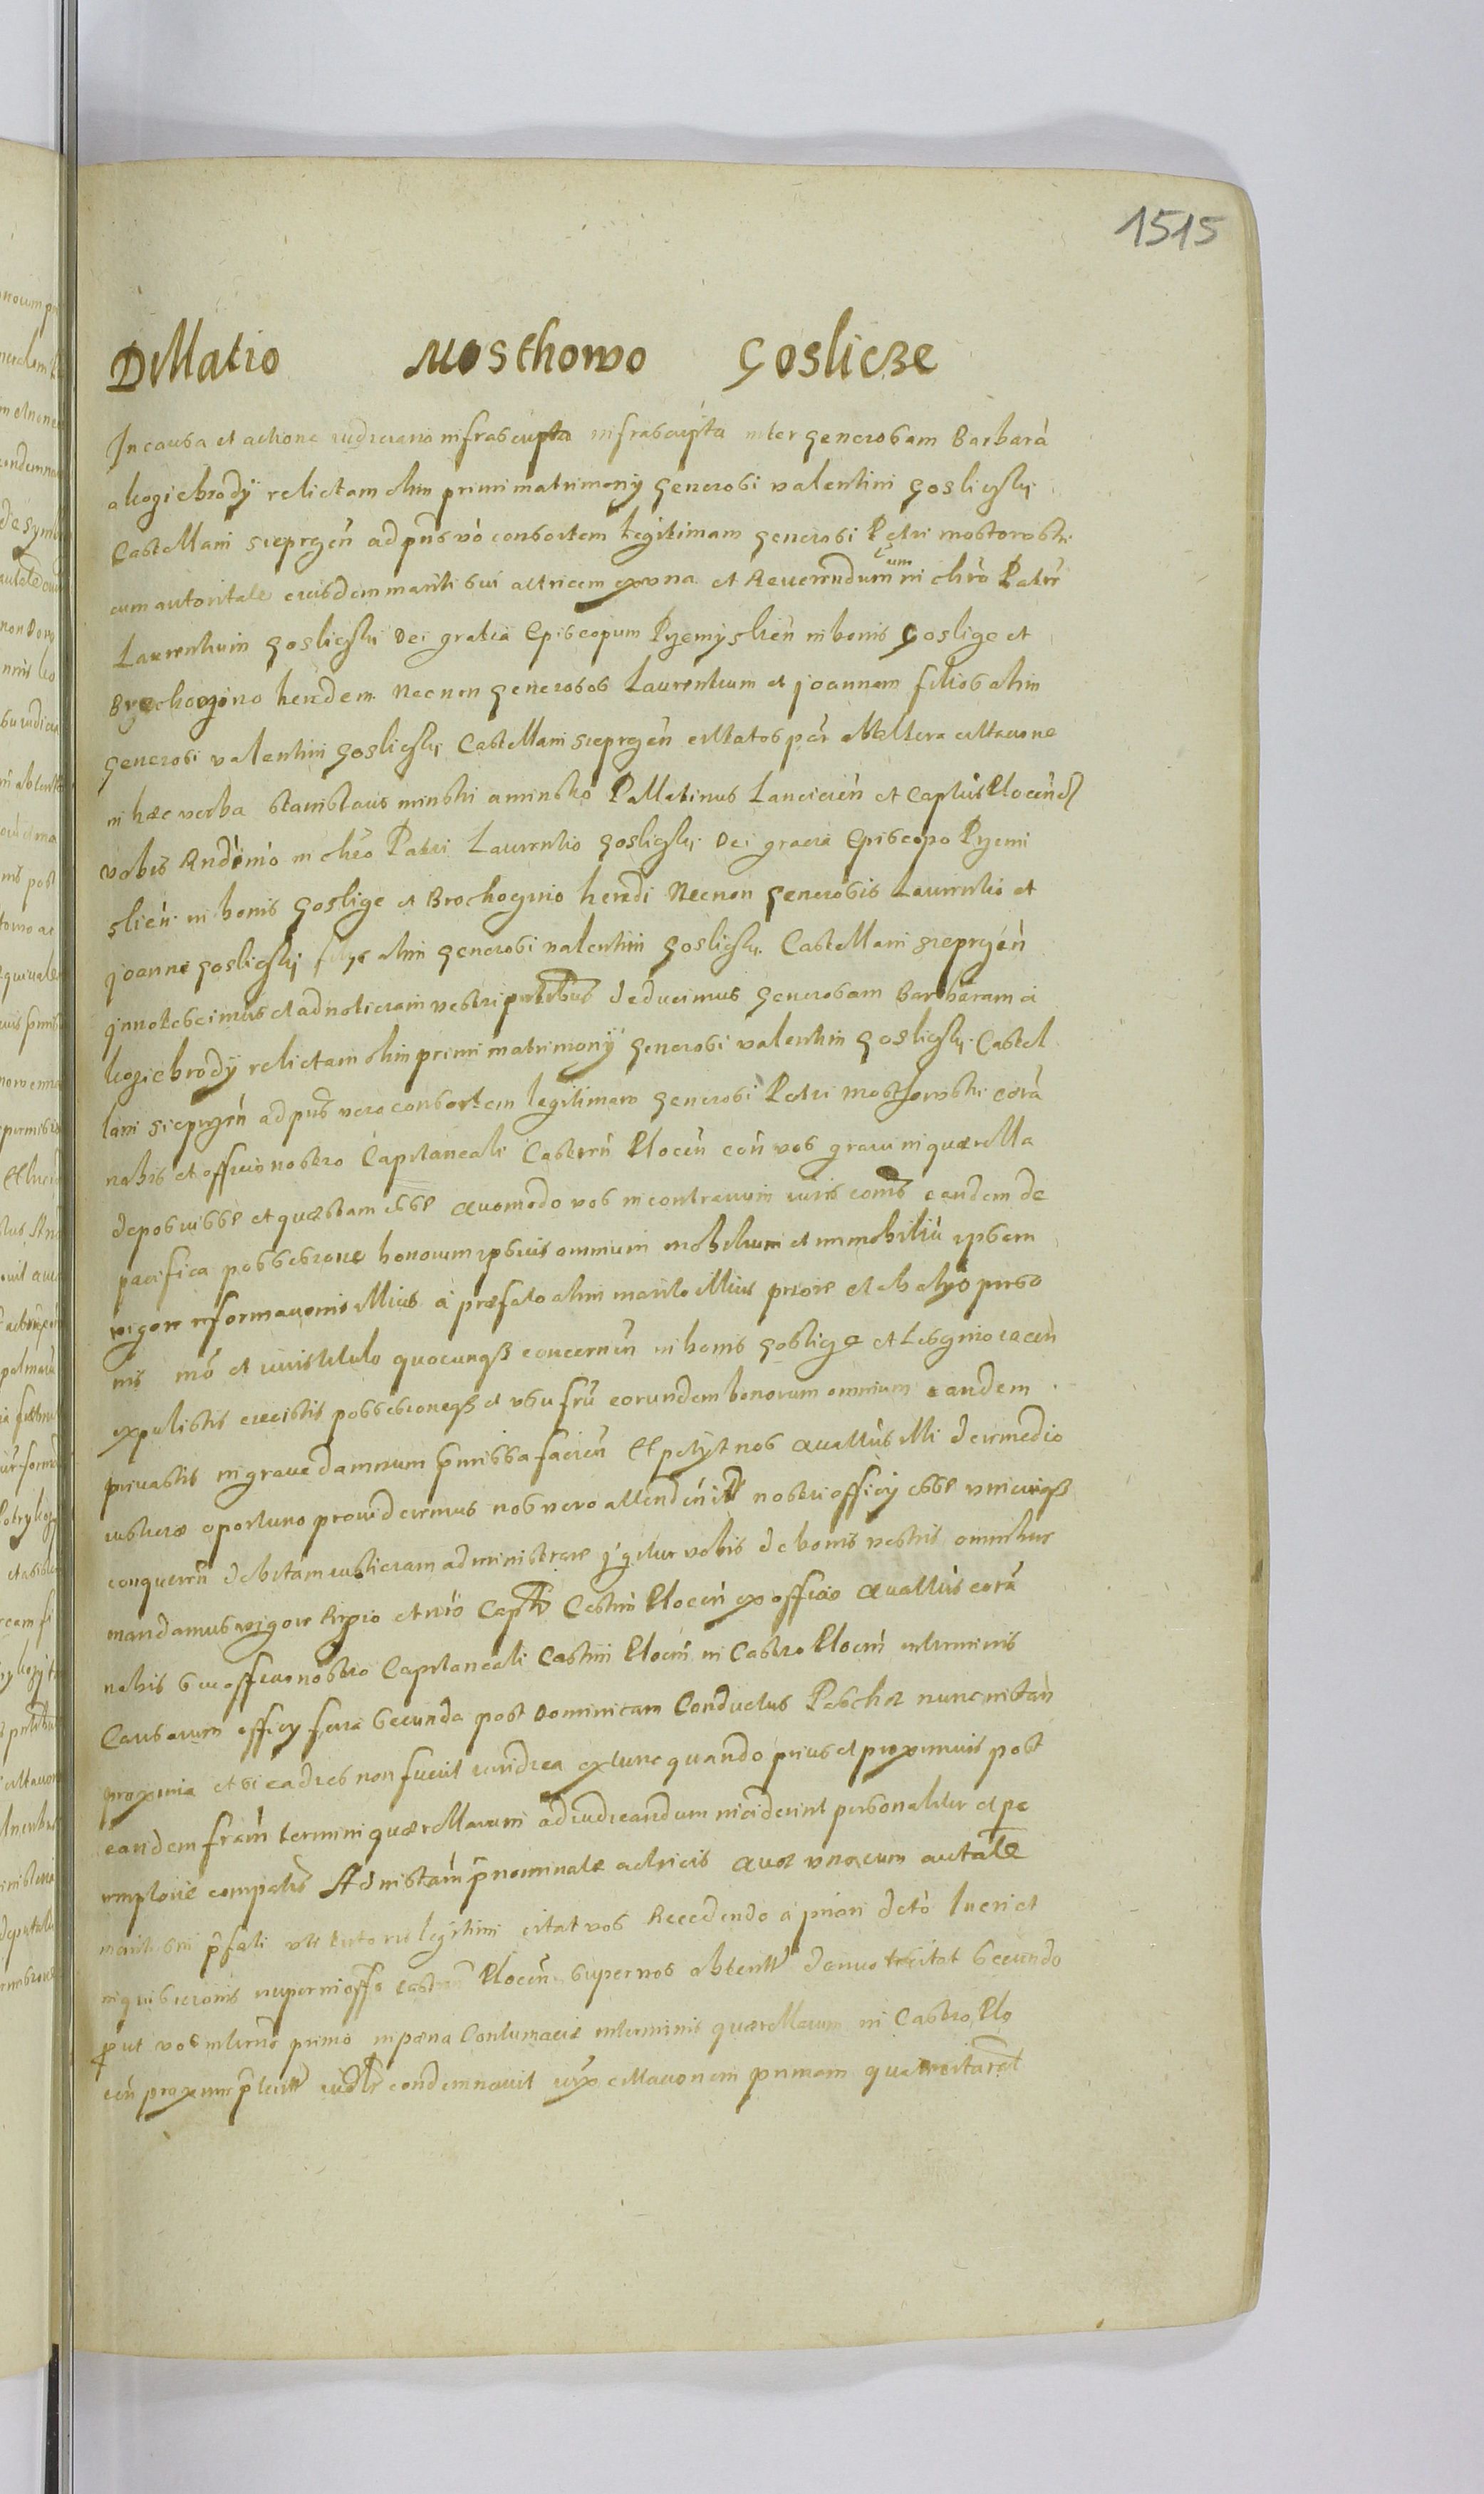 1515
Dillatio Mosthowo Goslicze
In causa et actione iudiciario infrascripta infrascripta inter generosam Barbarā
a koziebrodÿ relictam olim primi matrimonÿ generosi valentini gosliczkj
Castellani sieprczeń ad pn̄s vō consortem legitimam generosi Petri mostowski
cum autoritate eiusdem mariti sui actricem ex vna et Reuerendum in chr̄o Patrē
cum
Laurentium gosliczkj Dei gratia Episcopum Pzemyslień in bonis Goslicze et
hered̄em Necnon generosos Laurentium et joannem filios olim
generosi valentini goslickj Castellani sieprczeń citatos per citatione
in hæc verba Stanislaus minski a minsko Pallatinus Lancicień et Captūs Ploceń
vobis Rnd̄imō in chr̄o Patri Laurentio goslickj Dei gracia Episcopo Pzemi
slień in bonis goslicze et Brochoczino hered̄i Necnon generosis Laurentio et
joanne goslickj filÿs olim generosi valentini goslickj Castellani sieprczeń
jnnotescimus et ad noticiam vestri deducimus generosam Barbaram a
koziebrodÿ relictam olim primi matrimonÿ generosi valentini goslickj Castel
lani sieprczeń ad pn̄s vero consortem legitimam generosi Petri mosthowski corā
nobis et officio nostro Capitaneali Castreń Ploceń coń vos graui in quærella
deposuisse et quæstam esse Quomodo vos in contrauium iuris eandem de
pacifica possesione bonorum ipsius omnium mobilium et immobiliū ipsam
vigore reformationis illius a præfato olim marito illius priore et ab alÿs perso
nis mō et iuris titulo quocunqȝ concerneń in bonis goslicze et iaceń
expulistis eiecistis possesioneqȝ et vsufrū eorundem bonorum omnium eandem
priuastis in graue damnum p̄missa facień Et petÿt nos Quattūs illi de remedio
iusticiæ oportuno prouideremus nos vero attendeń nostri officÿ esse vnicuiqȝ
conquereń debitam iusticiam administrare jgitur vobis de bonis vestris omnibus
mandamus vigore Regio et nrō Castreń Ploceń ex officio Quattūs corā
nobis siue officio nostro Capitaneali Castreń Ploceń in Castro Ploceń in terminis
Causarum officÿ feria secunda post Dominicam Conductus Paschæ nunc instań
proxima et si ea dies non fuerit iuridica ex tunc quando prius et proximius post
eandem terminj quærellarum ad iudicandum inciderint personaliter et pe
remptorie compatis Ad instań p̄nominatæ actricis Quæ vna cum
mariti sui p̄fati vti tutoris legitimi citat vos Recedendo a priori
inquisicionis nuper in offo Ploceń super vos obtenti denuo citat secundo
put vos in termō primo in pæna Contumaciæ in terminis quærellarum in Castro Plo
ceń proxime condemnauit citationem primam